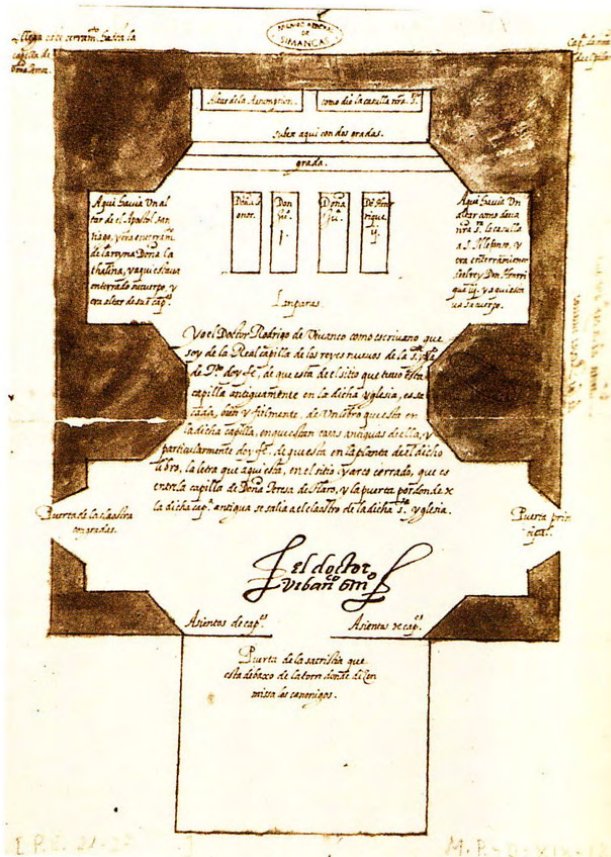 ARCHIVO GENERAL
DE
SIMANCAS
llega este cerram.to hasta la
capilla de
Altar de la Assumption.
como dio la casulla nra. S.ª
suben aqui con dos gradas.
grada.
Doña
onor.
Don
Doña
Do Hen
rique
ij.
Aqui havia Un al
tar de el Apostol san
tiago, y era enterram.
de la reyna Doña Ca
thalina, y aqui estava
enterrado su cuerpo, y
era altar de su cap.ª
Aqui havia Un
altar como dava
nra S.ª la casulla
a S. Ilefonso, y
era enterramiento
del rey Don Henrri
que iij. y aqui esta
va su cuerpo.
Lamparas.
Yo el Doctor Rodrigo de Vivanco como escrivano que
soy de la Real capilla de los reyes nuevos de la S.ta ygle.
de T.do doy fe, de que esta de el sitio que tuvo esta
capilla antiguamente en la dicha yglesia, es sa
cada, bien y fielmente, de Un libro que esta en
la dicha capilla, en que estan cosas antiguas de ella, y
particularmente doy fe. de que esta en la planta de el dicho
libro, la letra que aqui esta, en el sitio y arco cerrado, que es
entre la capilla de Doña Teresa de Haro, y la puerta por donde de
la dicha cap.ª antigua se salia a el claustro de la dicha S.ta yglesia.
Puerta de la claostra
con gradas.
Puerta prin
cipal.
El doctor
vibanco
Asientos de cap.es
Asientos de cap.es
Puerta de la sacristia que
esta debaxo de la torre donde dizen
missa los canonigos.